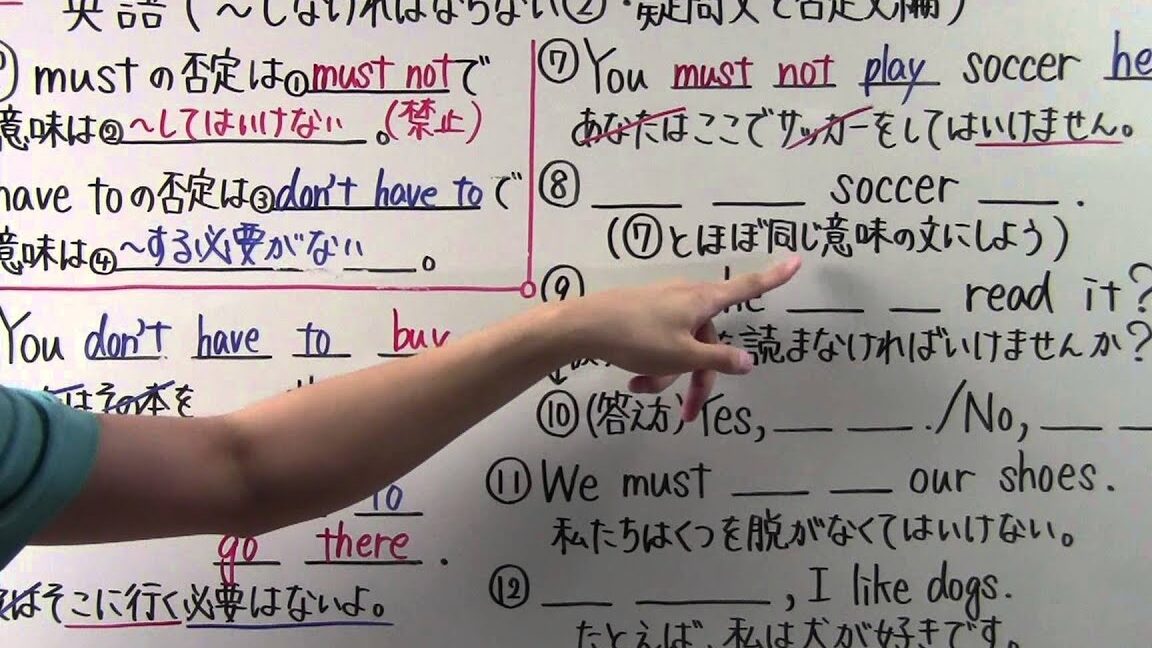 英語(～しなければならない②・疑問文と否定文編)
mustの否定は①must notで
意味は②～してはいけない。(禁止)
have toの否定は③don't have toで
意味は④～する必要がない。
You don't have to buy
はその本を
to
go there.
はそこに行く必要はないよ。
⑦You must not play soccer he
あなたはここでサッカーをしてはいけません。
⑧___ ___ soccer ___.
(⑦とほぼ同じ意味の文にしよう)
⑨ he ___ ___ read it?
を読まなければいけませんか?
⑩(答え方)Yes, ___ ___./No, ___ ___
⑪We must ___ ___ our shoes.
私たちはくつを脱がなくてはいけない。
⑫___ ___, I like dogs.
たとえば、私は犬が好きです。